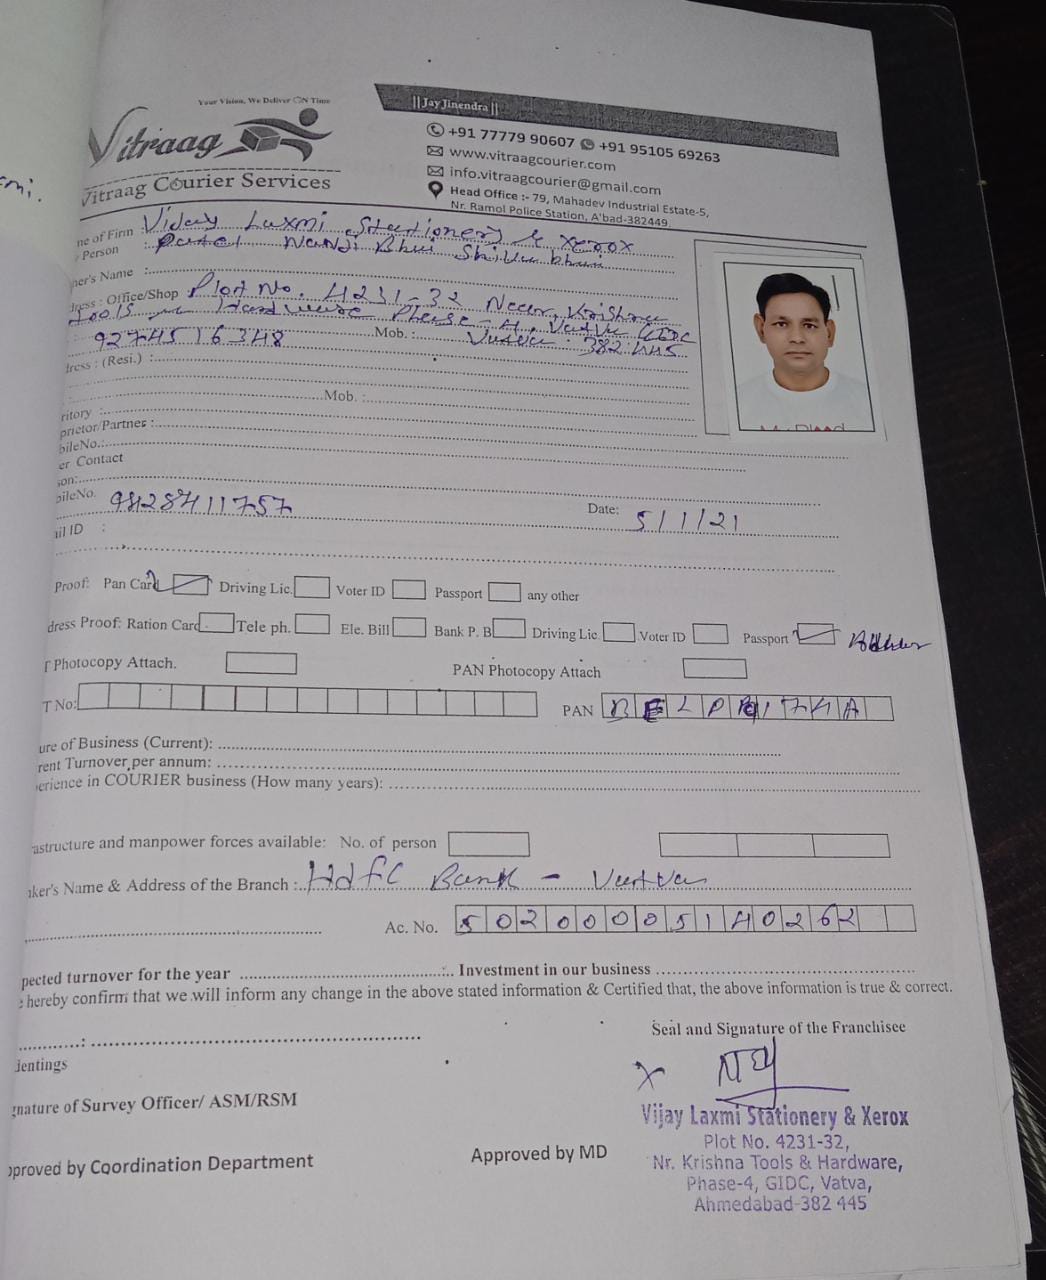 Your Vision, We Deliver ON Time
|| Jay Jinendra ||
Vitraag
Vitraag Courier Services
+91 77779 90607 +91 95105 69263
www.vitraagcourier.com
info.vitraagcourier@gmail.com
Head Office :- 79, Mahadev Industrial Estate-5,
Nr. Ramol Police Station, A'bad-382449
ne of Firm : Vijay Laxmi Stationery & Xerox
Person : Patel Nanji Bhai
ner's Name :
dress : Office/Shop Plot No. 4231-32 Near, Krishna
Tools Hardware Phase-4, Vatva GIDC
9274516348 Mob. : Vatva. 382445
dress : (Resi.) :
Mob. :
ritory :
prietor/Partner :
bileNo.:
er Contact
son:
bileNo. 9428411757 Date: 5/1/21
ail ID :
Proof: Pan Card Driving Lic. Voter ID Passport any other
dress Proof: Ration Card Tele ph. Ele. Bill Bank P. B Driving Lic. Voter ID Passport
T Photocopy Attach. PAN Photocopy Attach
T No: PAN
ure of Business (Current):
rent Turnover per annum:
erience in COURIER business (How many years):
astructure and manpower forces available: No. of person
ker's Name & Address of the Branch : Hdfc Bank - Vatva
Ac. No. 50200005140262
pected turnover for the year Investment in our business
e hereby confirm that we will inform any change in the above stated information & Certified that, the above information is true & correct.
Seal and Signature of the Franchisee
dentings
X
gnature of Survey Officer/ ASM/RSM
Vijay Laxmi Stationery & Xerox
Plot No. 4231-32,
Nr. Krishna Tools & Hardware,
Phase-4, GIDC, Vatva,
Ahmedabad-382 445
pproved by Coordination Department Approved by MD